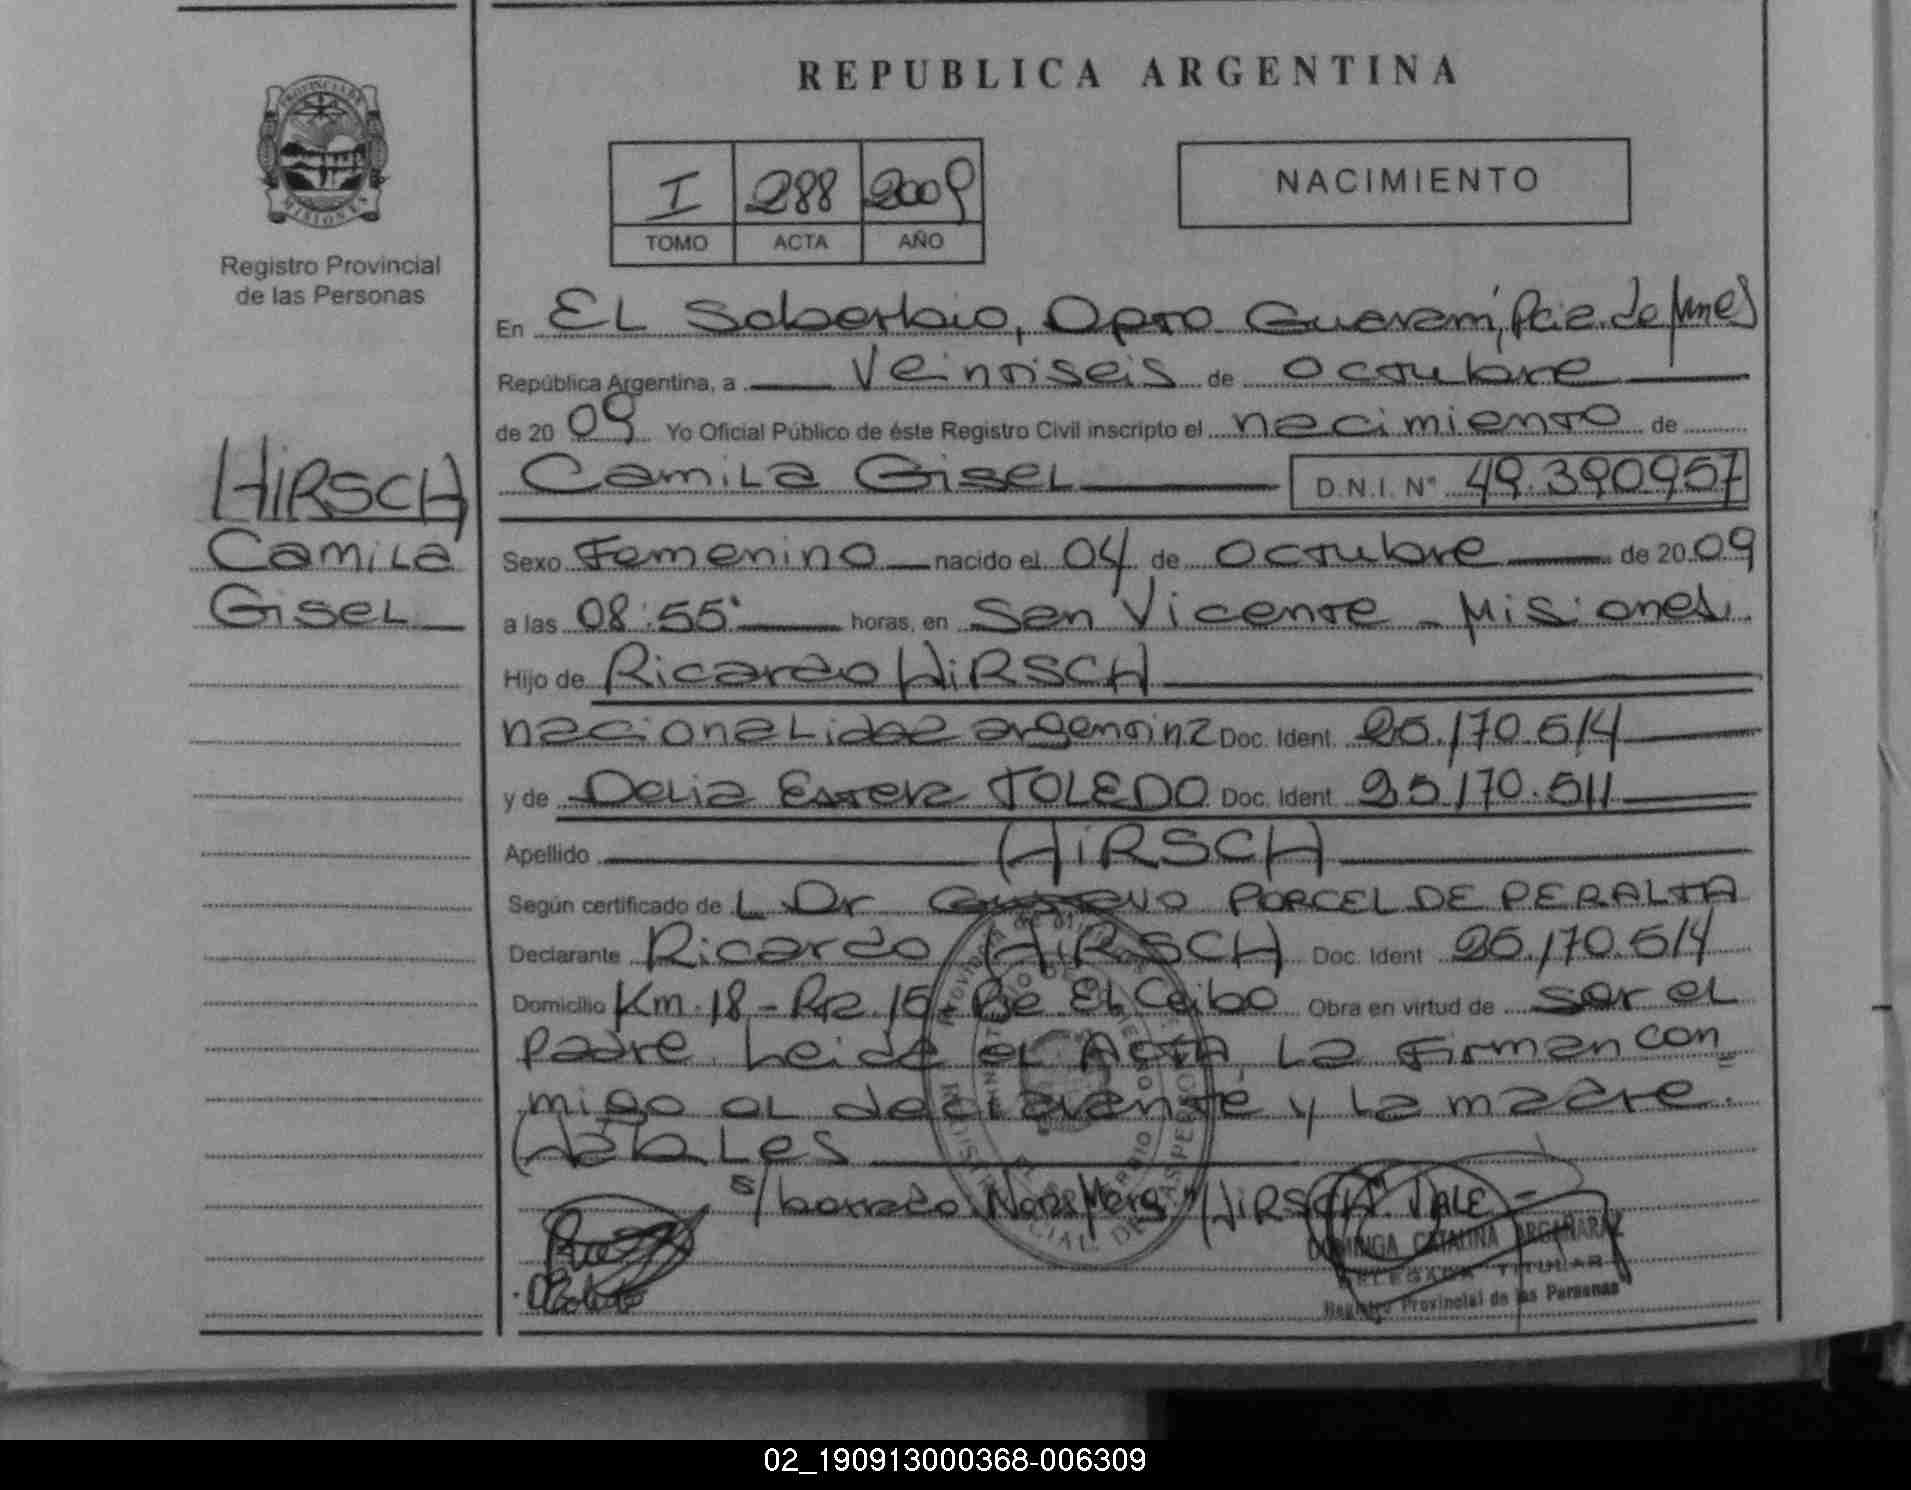 REPUBLICA ARGENTINA
PROVINCIA DE
MISIONES
Registro Provincial
de las Personas
I 288 2009
TOMO ACTA AÑO
NACIMIENTO
En EL Soberbio, Dpto Guaraní, Pcia. de Mnes
República Argentina, a Veintiseis de octubre
de 2009 Yo Oficial Público de éste Registro Civil inscripto el nacimiento de
Camila Gisel D.N.I. N° 49.390957
HIRSCH
Camila
Gisel
Sexo Femenino nacido el 04 de octubre de 2009
a las 08:55' horas, en San Vicente - Misiones.
Hijo de Ricardo HIRSCH
nacionalidad argentina Doc. Ident. 25.170.514
y de Delia Estela TOLEDO Doc. Ident. 25.170.511
Apellido HIRSCH
Según certificado de L Dr Gustavo PORCEL DE PERALTA
Declarante Ricardo HIRSCH Doc. Ident 25.170.514
Domicilio Km. 18 - Rta. 15 El Ceibo Obra en virtud de ser el
padre. Leida el Acta, la firman con
migo el declarante y la madre.
Hábiles
s/borrado Nota Marg "HIRSCH" VALE -
DOMINGA CATALINA ARGAÑARAZ
DELEGADA TITULAR
Registro Provincial de las Personas
02_190913000368-006309